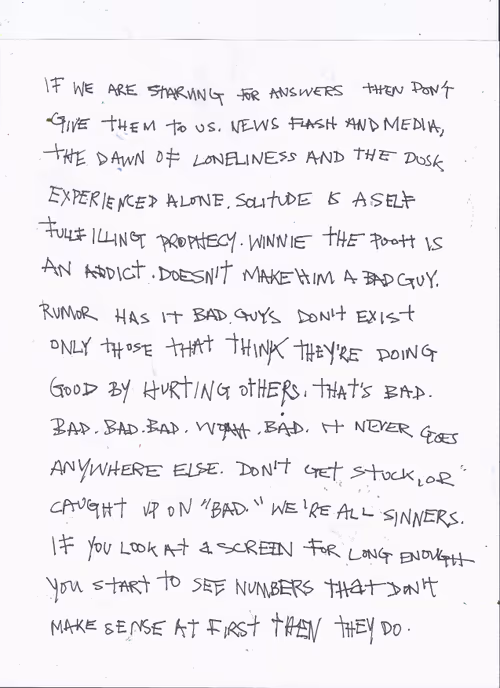 IF WE ARE STARVING FOR ANSWERS THEN DON'T
GIVE THEM TO US. NEWS FLASH AND MEDIA,
THE DAWN OF LONELINESS AND THE DUSK
EXPERIENCED ALONE. SOLITUDE IS A SELF
FULLFILLING PROPHECY. WINNIE THE POOH IS
AN ADDICT. DOESN'T MAKE HIM A BAD GUY.
RUMOR HAS IT BAD GUYS DON'T EXIST
ONLY THOSE THAT THINK THEY'RE DOING
GOOD BY HURTING OTHERS. THAT'S BAD.
BAD. BAD. BAD. WOAH. BAD. IT NEVER GOES
ANYWHERE ELSE. DON'T GET STUCK, OR
CAUGHT UP ON "BAD." WE'RE ALL SINNERS.
IF YOU LOOK AT A SCREEN FOR LONG ENOUGH
YOU START TO SEE NUMBERS THAT DON'T
MAKE SENSE AT FIRST THEN THEY DO.